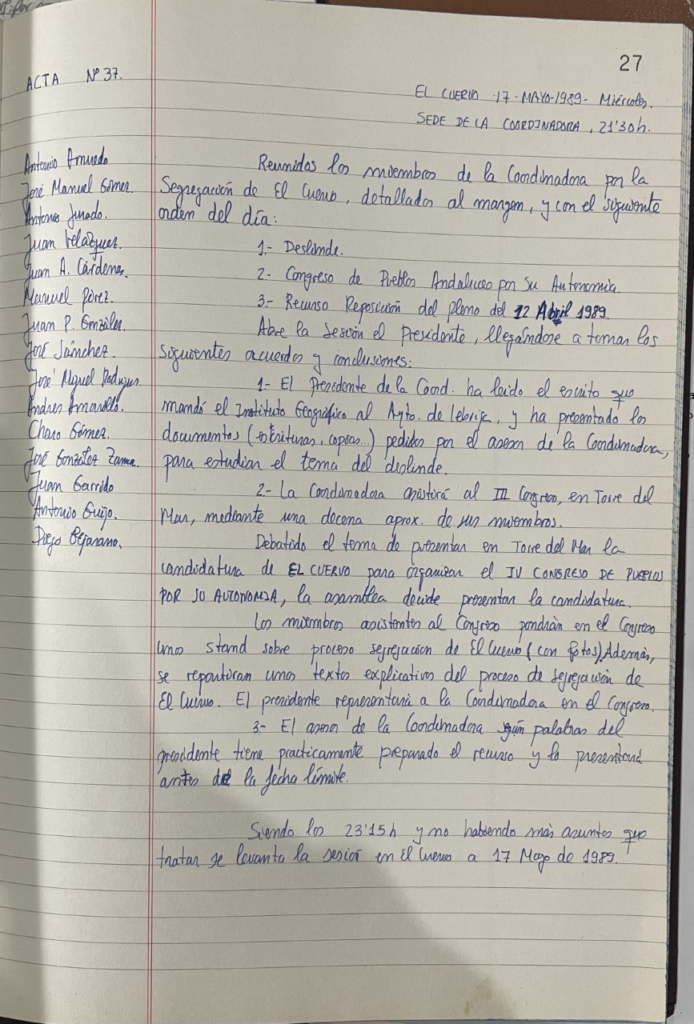 27
ACTA Nº 37.
EL CUERVO - 17 - MAYO - 1989 - Miércoles.
SEDE DE LA COORDINADORA, 21'30h.
Antonio Amuedo
José Manuel Gómez
Antonio Jurado.
Juan Velázquez.
Juan A. Cárdenas.
Manuel Pérez.
Juan P. González
José Sánchez.
José Miguel
Andrés Amarillo.
Charo Gómez.
José González Zama
Juan Garrido
Antonio Guijo.
Diego Bejarano.
Reunidos los miembros de la Coordinadora por la
Segregación de El Cuervo, detallados al margen, y con el siguiente
orden del día:
1.- Deslinde.
2.- Congreso de Pueblos Andaluces por su Autonomía.
3.- Recurso Reposición del pleno del 12 Abril 1989.
Abre la sesión el Presidente, llegándose a tomar los
siguientes acuerdos y conclusiones:
1- El Presidente de la Coord. ha leído el escrito que
mandó el Instituto Geográfico al Ayto. de Lebrija, y ha presentado los
documentos (escrituras, copias) pedidos por el asesor de la Coordinadora,
para estudiar el tema del deslinde.
2- La Coordinadora asistirá al III Congreso, en Torre del
Mar, mediante una decena aprox. de sus miembros.
Debatido el tema de presentar en Torre del Mar la
candidatura de EL CUERVO para organizar el IV CONGRESO DE PUEBLOS
POR SU AUTONOMIA, la asamblea decide presentar la candidatura.
Los miembros asistentes al Congreso pondrán en el Congreso
unos stand sobre proceso segregación de El Cuervo (con fotos). Además,
se repartirán unos textos explicativos del proceso de segregación de
El Cuervo. El presidente representará a la Coordinadora en el Congreso.
3- El asesor de la Coordinadora según palabras del
presidente tiene practicamente preparado el recurso y lo presentará
antes de la fecha límite.
Siendo las 23'15h y no habiendo más asuntos que
tratar se levanta la sesión en El Cuervo a 17 Mayo de 1989.